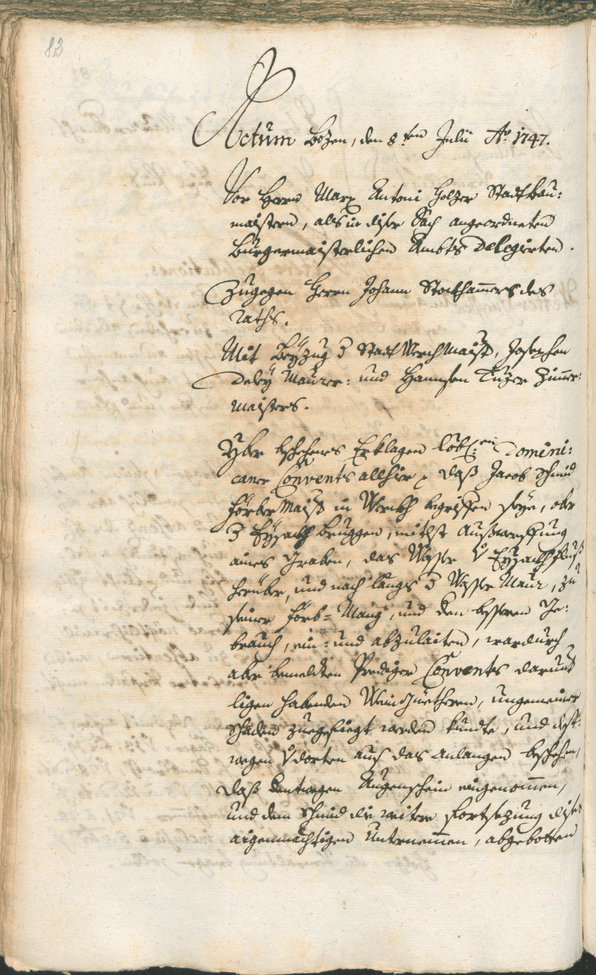 82
Actum Bozen, den 8ten Julii Ao 1747.
Vor Herrn Marx Antoni Holzer Stadtbau:
maistern, als in diser Sach angeordneten
Burgermaisterlichen Ambts Delegirten.
Zugegen Herrn Johann Stockhamers des
Raths.
Mit Beÿzug d Stadt Werchmaistr, Josephen
Delaÿ Maurer: und Hannsen Tuzer Zimer:
maisters.
Yber beschehenes Erklagen löbl:en Domini:
caner Convents allhier daß Jacob Schmid
Förber Maistr in Werckh begriffen seye, ober
d Eÿsackh bruggen, mitlst Aufwerffung
aines Graben, das Wasser V Eÿsackhfluß
herüber, und nach längs d Wasser Maur, zu
seiner Förb-Mang, und den bessren Ge:
brauch, ein: und abzulaiten, wardurch
aber bemelten Prediger Convents darundt
ligen habenden Wein Güethern, ungemainer
Schaden zuegefiegt werden kundte, und dest:
wegen V dorten aus das Anlangen beschehen,
daß dentwegen Augenschein eingenommen,
und dem Schmid die weitere Fortsezung dises
aigenmächtigen Unternemen, abgebotten